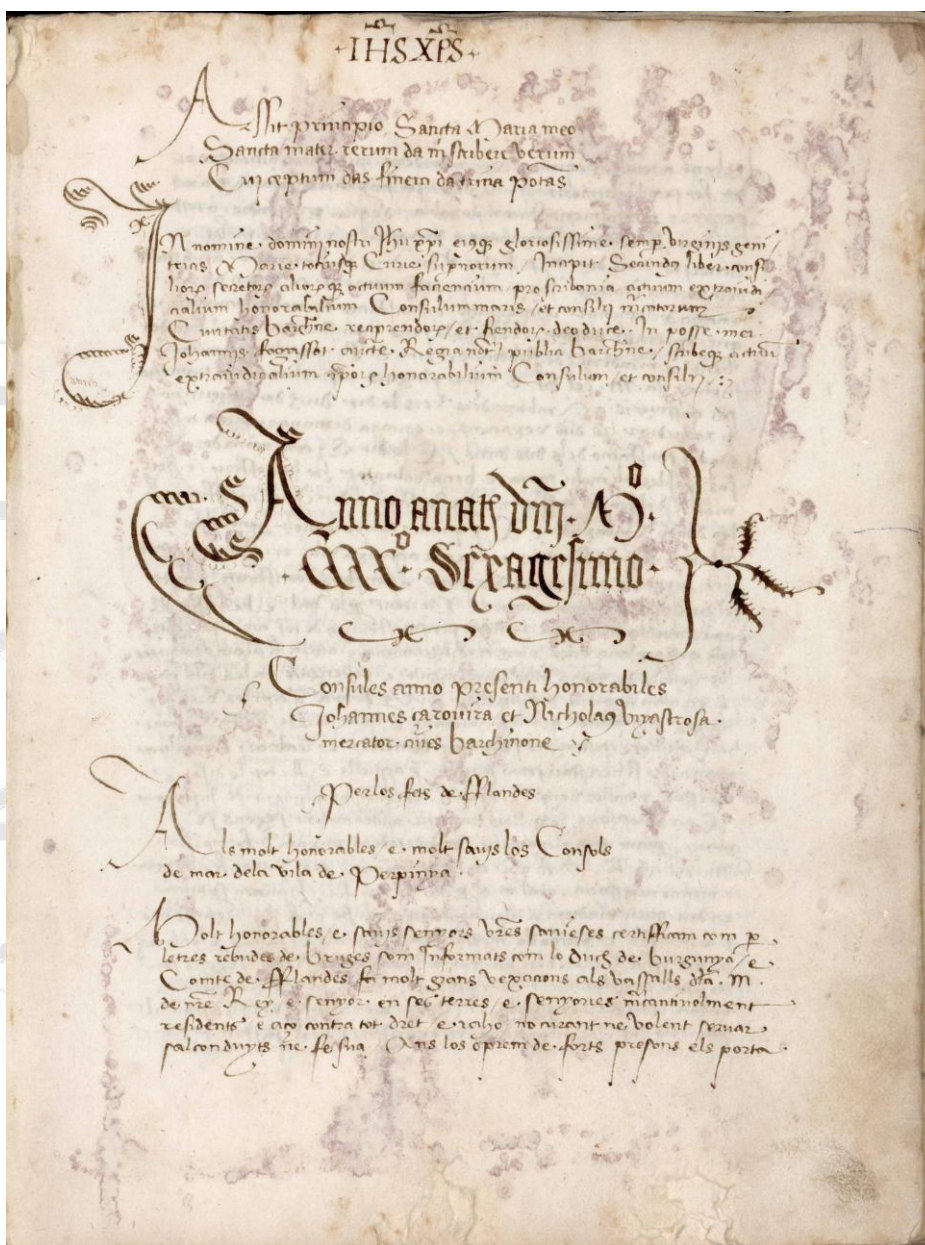 ·IHS XPS·
Assit principio Sancta Maria meo
Sancta mater rerum da m scribere verum
Cui ceptum das finem da trina potas
IN nomine domini nostri Jhu xpi eiusq gloriosissime semp virginis geni
tricis Marie totiusq Curie supnorum Incipit Secundus liber consi
liorum secretorum aliorumq actuum faciencium pro scribania actuum extraiudi
cialium honorabilium Consulum maris et consilii mcatorum
Civitatis barchne et fiendorum deo duce In posse mei
Johannis fogassot aucte Regia not publici barchne scribeq actuum
extraiudicialium iporum honorabilium Consulum et consilii
Anno a nat dni Mº
CCCCº Sexagesimo
Consules anno presenti honorabiles
Johannes çarovira et Nicholaus viyastrosa
mercator cives barchinone
Per los fets de fflandes
Als molt honorables e molt savis los Consols
de mar dela vila de Perpinya
Molt honorables e savis senyors vres savieses certifficam com p
letres rebudes de bruges som Informats com lo duch de burgunya e
Comte de fflandes fa molt grans vexacions als vassalls dla M
de nre Rey e senyor en ses terres e senyories mcantivolment
residents e aço contra tot dret e raho no curant ne volent servar
salconduyts ne fe sua Ans los oprem de forts presons els porta